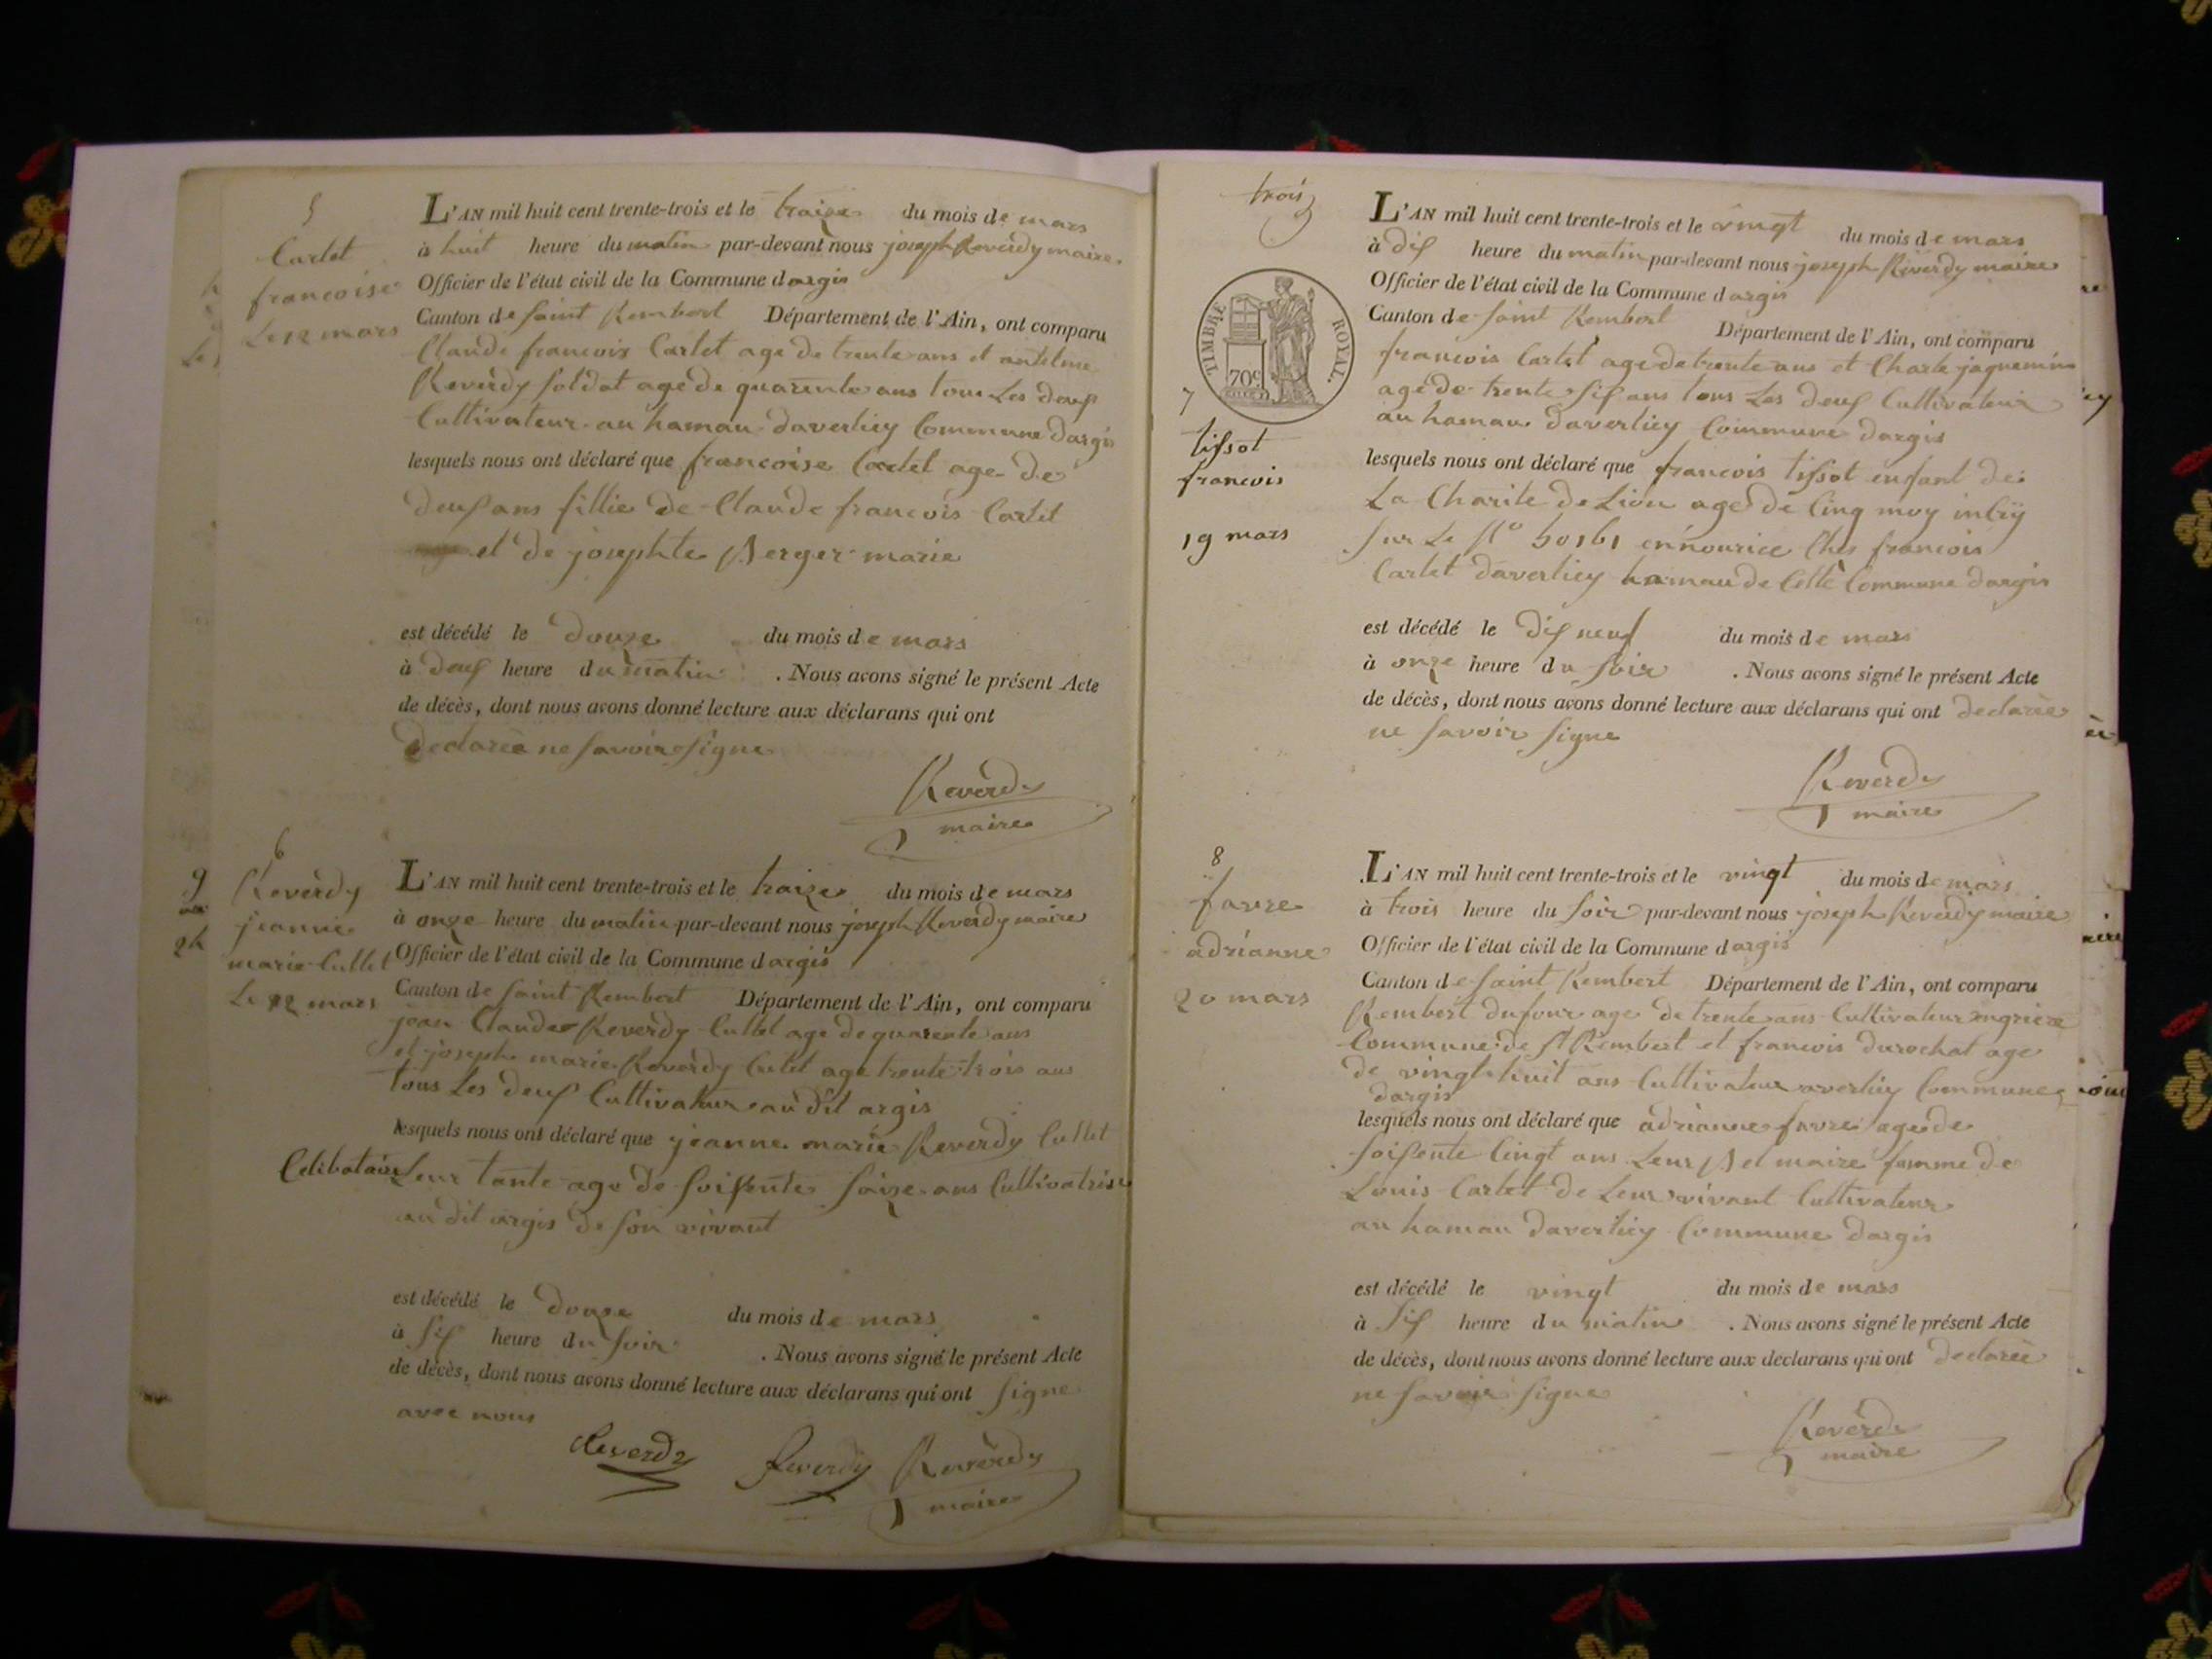 5
Cartet
francoise
Le 12 mars
L'AN mil huit cent trente-trois et le traize du mois de mars
à huit heure du matin par-devant nous joseph Reverdy maire
Officier de l'état civil de la Commune dargis
Canton de saint Rembert Département de l'Ain, ont comparu
Claude francois Cartet age de trente ans et antelme
Reverdy soldat age de quarente ans tous Les deux
Cultivateur au hamau daverliey Commune dargis
lesquels nous ont déclaré que francoise Cartet age de
deux ans fillie de Claude francois Cartet
et de josephte Berger marie
est décédé le douze du mois de mars
à deux heure du matin . Nous avons signé le présent Acte
de décès, dont nous avons donné lecture aux déclarans qui ont
declarée ne savoir signe
Reverdy
maire
6
Reverdy
jeanne
marie Cullet
Le 12 mars
L'AN mil huit cent trente-trois et le traize du mois de mars
à onze heure du matin par-devant nous joseph Reverdy maire
Officier de l'état civil de la Commune dargis
Canton de saint Rembert Département de l'Ain, ont comparu
jean Claude Reverdy Cullet age de quarente ans
et joseph marie Reverdy Cullet age trente trois ans
tous Les deux Cultivateur au dit argis
lesquels nous ont déclaré que jeanne marie Reverdy Cullet
Celibataire Leur tante age de soissente saize ans Cultivatrise
au dit argis de son vivant
est décédé le douze du mois de mars
à six heure du soir . Nous avons signé le présent Acte
de décès, dont nous avons donné lecture aux déclarans qui ont signe
avec nous
Reverdy Reverdy Reverdy
maire
trois
TIMBRE ROYAL.
70c
7
tissot
francois
19 mars
L'AN mil huit cent trente-trois et le vingt du mois de mars
à dix heure du matin par-devant nous joseph Reverdy maire
Officier de l'état civil de la Commune dargis
Canton de saint Rembert Département de l'Ain, ont comparu
francois Cartet age de trente ans et Charle jaquemin
age de trente six ans tous Les deux Cultivateur
au hamau daverliey Commune dargis
lesquels nous ont déclaré que francois tissot enfant de
La Charite de Lion age de Cinq moy
sur Le No 50161 en nourice Ches francois
Cartet daverliey hamau de Cette Commune dargis
est décédé le dix neuf du mois de mars
à onze heure du soir . Nous avons signé le présent Acte
de décès, dont nous avons donné lecture aux déclarans qui ont declarée
ne savoir signe
Reverdy
maire
8
favre
adrianne
20 mars
L'AN mil huit cent trente-trois et le vingt du mois de mars
à trois heure du soir par-devant nous joseph Reverdy maire
Officier de l'état civil de la Commune dargis
Canton de saint Rembert Département de l'Ain, ont comparu
Rembert dufour age de trente ans Cultivateur
Commune de St Rembert et francois durochat age
de vingt huit ans Cultivateur averliey Commune
dargis
lesquels nous ont déclaré que adrianne favre age de
soissente Cingt ans Leur Bel maire famme de
Louis Cartet de Leur vivant Cultivateur
au hamau daverliey Commune dargis
est décédé le vingt du mois de mars
à six heure du matin . Nous avons signé le présent Acte
de décès, dont nous avons donné lecture aux declarans qui ont declarée
ne savoir signe
Reverdy
maire